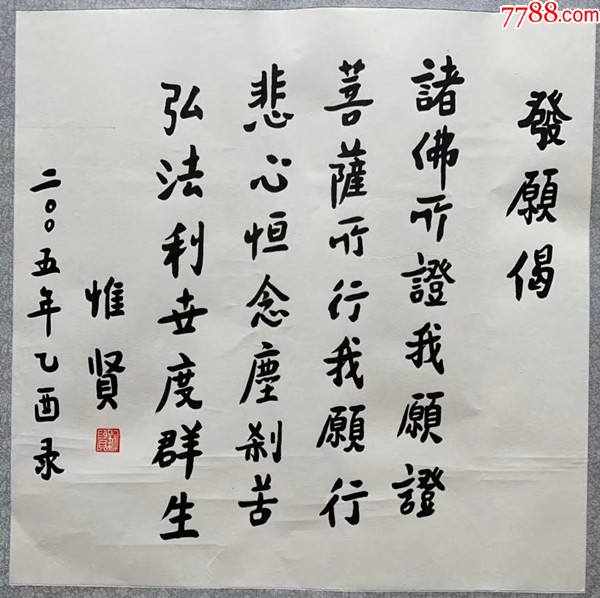 7788.com
發願偈
諸佛所證我願證
菩薩所行我願行
悲心恒念塵刹苦
弘法利世度群生
惟賢
二〇〇五年乙酉录